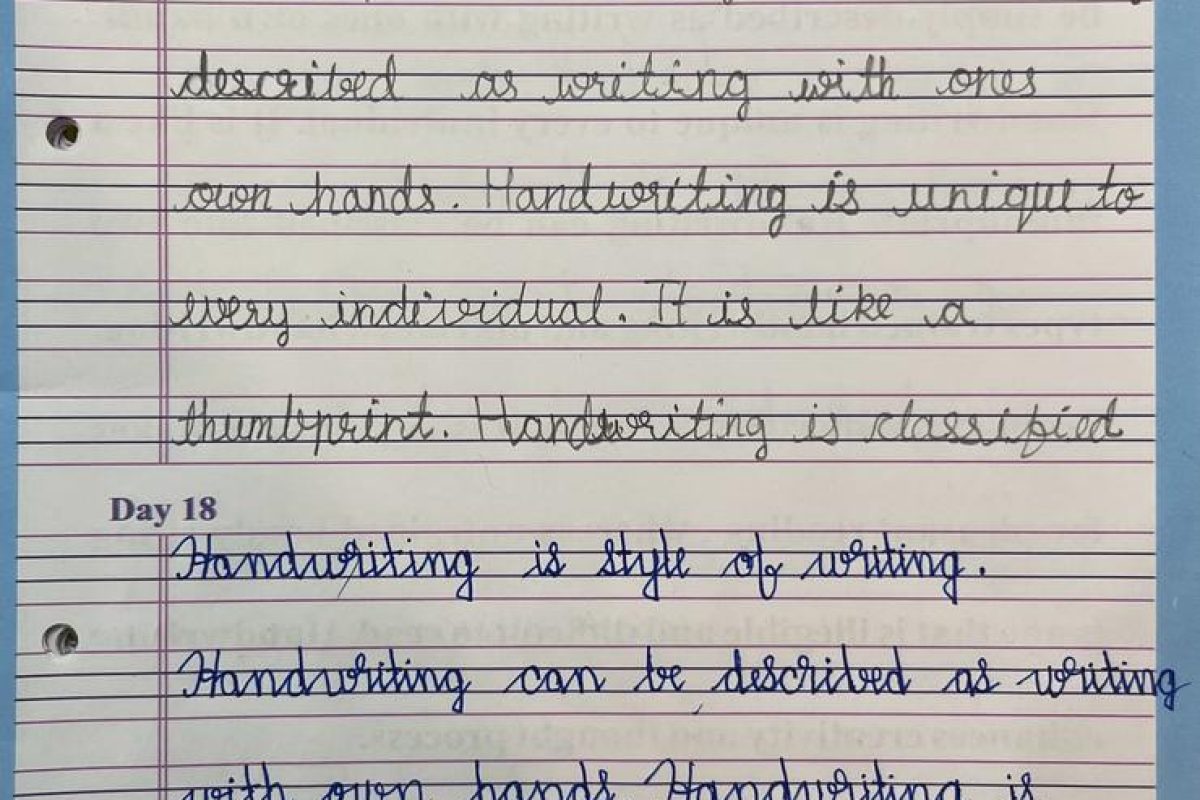 described as writing with ones
own hands. Handwriting is unique to
every individual. It is like a
thumbprint. Handwriting is classified
Day 18
Handwriting is style of writing.
Handwriting can be described as writing
with own hands. Handwriting is